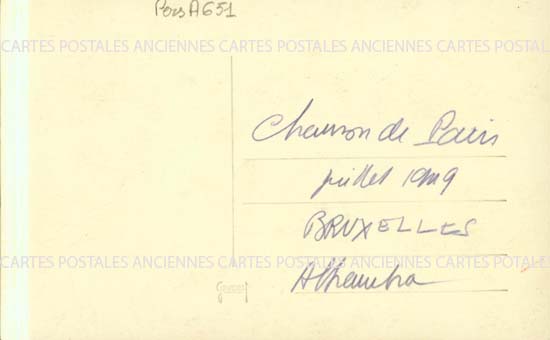 Pors A651
CARTES POSTALES ANCIENNES CARTES POSTALES ANCIENNES CARTES POSTALES ANCIENNES
Chanson de Paris
juillet 1949
BRUXELLES
CARTES POSTALES ANCIENNES CARTES POSTALES ANCIENNES CARTES POSTALES ANCIENNES
Alhambra